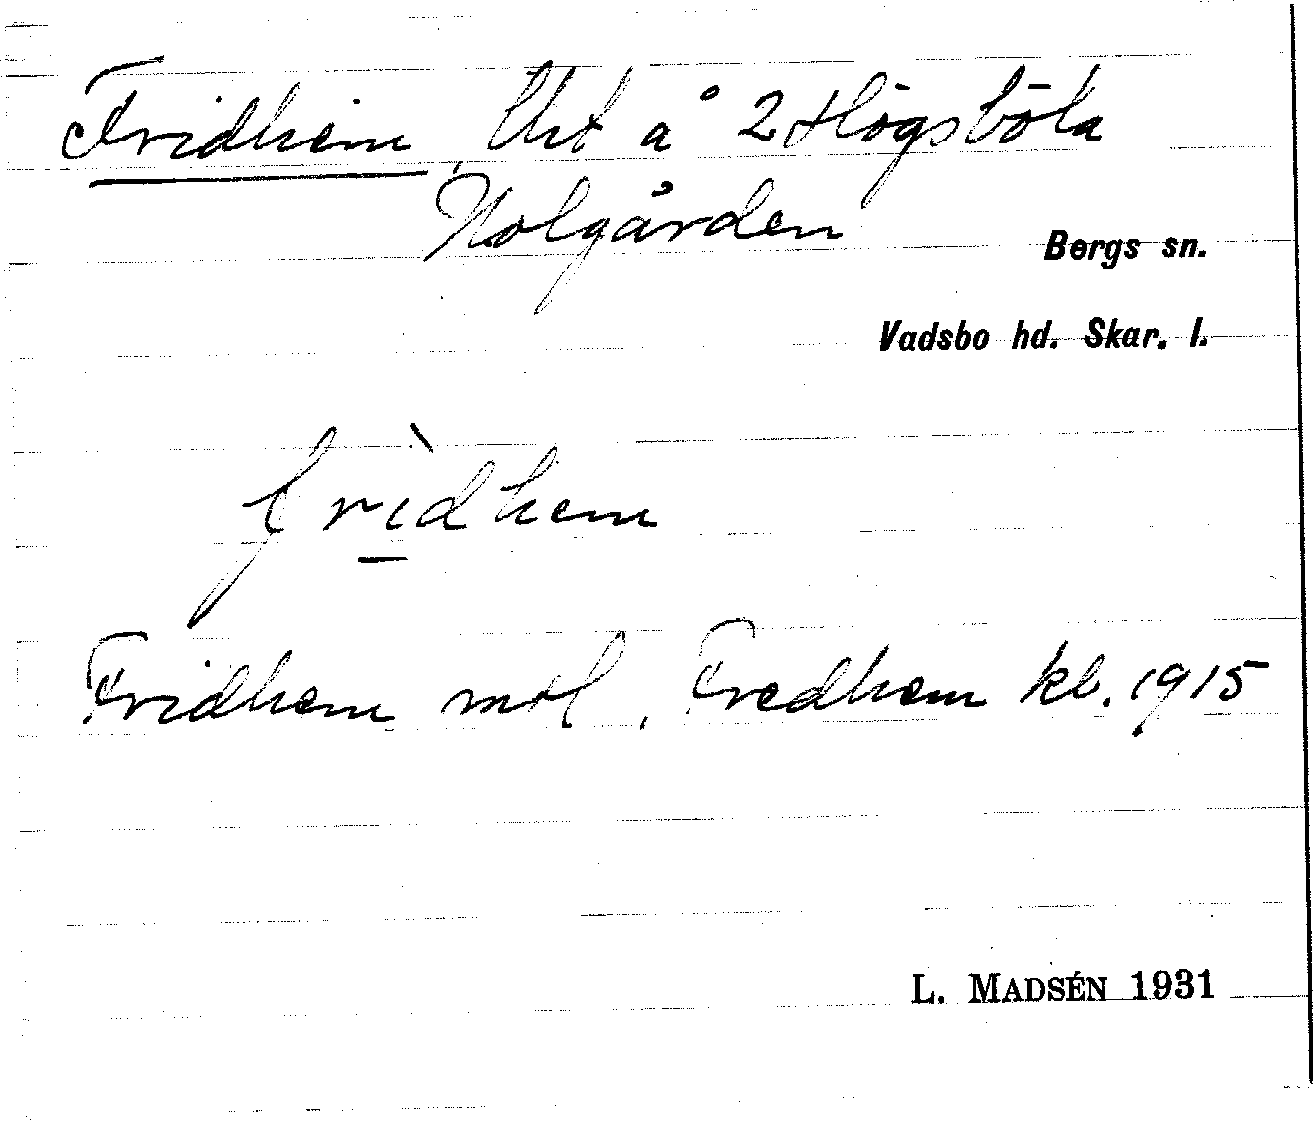 Fridhem, Uht å 2 Högsböla
Holgården
Bergs sn.
Vadsbo hd. Skar. l.
frìdhem
Fridhem mtl, Fredhem kb. 1915
L. MADSÉN 1931